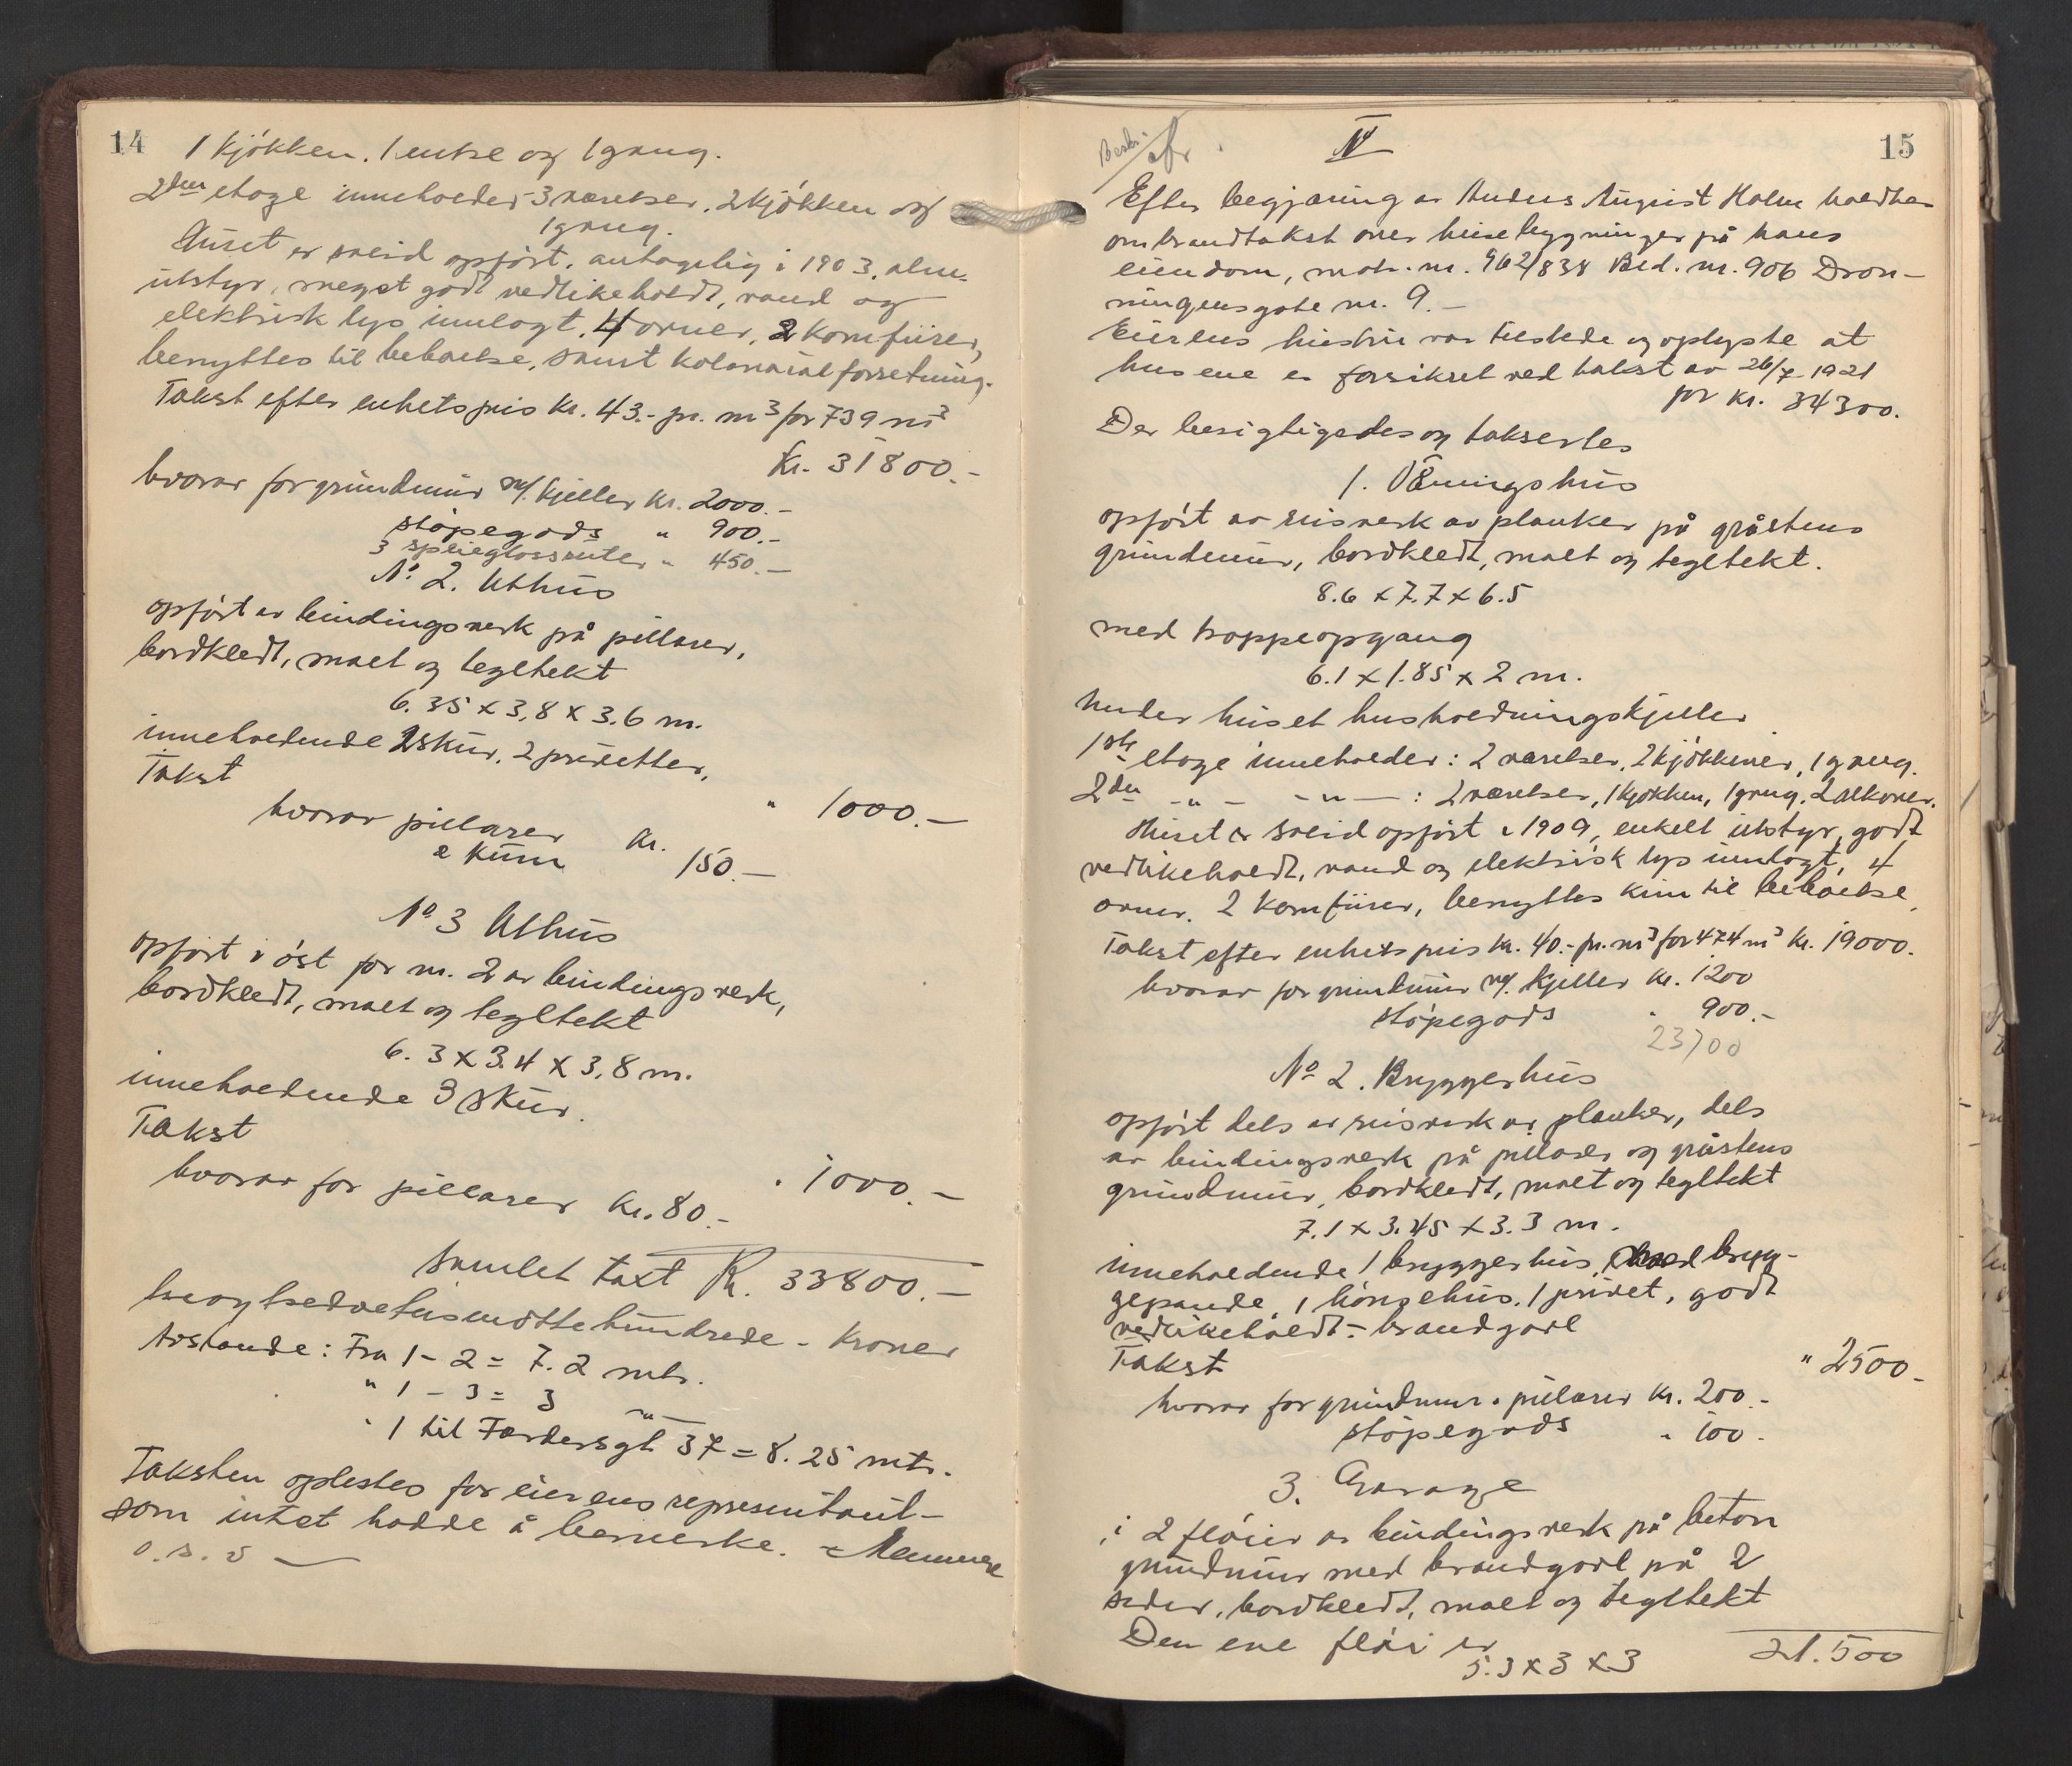 14
1 kjökken. 1 entre og 1 gang.
2den etage inneholder 3 værelser, 2 kjökken og
1 gang.
Huset er solid opfört, antagelig i 1903, alm.
utstyr, meget godt vedlikeholdt, vand og
elektrisk lys innlagt, 4 ovner, 2 komfürer,
benyttes til beboelse, samt kolonialforretning.
Takst efter enhetspris kr. 43.- pr. m3 for 739 m3
Kr. 31800.-
hvorav for grundmür m/ kjeller kr. 2000.-
stöpegods " 900.-
3 speilglassruter " 450.-
No 2. Uthüs
opfört av bindingsverk på pillarer,
bordkledt, malt og tegltekt
6.35 x 3,8 x 3.6 m.
inneholdende 2 skür, 2 privetter,
Takst
" 1000.-
hvorav pillarer kr.
2 küm 150.-
No 3 Uthüs
opfört i öst for nr. 2 av bindingsverk,
bordkledt, malt og tegltekt
6.3 x 3.4 x 3,8 m.
inneholdende 3 skür.
Takst
" 1000.-
hvorav for pillarer kr. 80.-
Samlet taxt Kr. 33800.-
treogtredvetusenottehundrede - Kroner
Avstande: Fra 1 - 2 = 7.2 mtr.
" 1 - 3 = 3 -"-
" 1 til Færdersgt 37 = 8.25 mtr.
Taksten oplestes for eierens representant -
som intet hadde å bemerke.
o.s.v
15
Beskr.
IV
Efter begjæring av Anders August Holm holdtes
ombrandtakst over hüsebygninger på hans
eiendom, matr. nr. 962/838 Bed. nr. 906 Dron-
ningensgate nr. 9.-
Eierens hüstrü var tilstede og oplyste at
husene er forsikret ved takst av 26/7-1921
for kr. 34300.
Der besigtigedes og taksertes
1. Våningshüs
opfört av reisverk av planker på gråstens
grundmür, bordkledt, malt og tegltekt.
8.6 x 7.7 x 6.5
med trappeopgang
6.1 x 1.85 x 2 m.
Under hüset husholdningskjeller
1ste etage inneholder: 2 værelser, 2 kjökkener, 1 gang.
2den -"- -"-: 2 værelser, 1 kjökken, 1 gang, 2 alkover.
Hüset er solid opfört i 1909, enkelt utstyr, godt
vedlikeholdt, vand og elektrisk lys innlagt, 4
ovner. 2 komfürer, benyttes kun til beboelse.
Takst efter enhetspris kr. 40.- pr. m3 for 474 m3 kr. 19000.
hvorav for grundmür m/ kjeller kr. 1200
stöpegods " 900.-
23700
No 2. Bryggerhüs
opfört dels av reisverk av planker, dels
av bindingsverk på pillarer og gråstens
grundmür, bordkledt, malt og tegltekt
7.1 x 3.45 x 3.3 m.
inneholdende 1 bryggerhüs, med bryg-
gepande, 1 hönsehüs, 1 privet, godt
vedlikeholdt - brandgavl
Takst
" 2500.-
hvorav for grundmur & pillarer kr. 200.-
stöpegods " 100.
3. Garage
i 2 flöier av bindingsverk på beton
grundmür med brandgavl på 2
sider, bordkledt, malt og tegltekt
Den ene flöi er
5.3 x 3 x 3
21.500